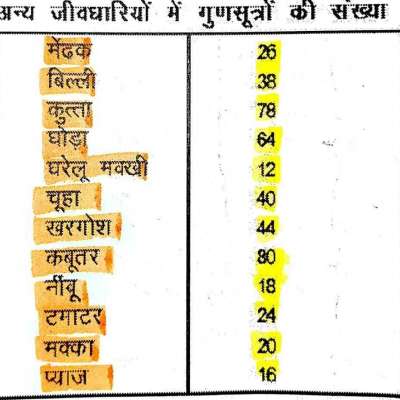 अन्य जीवधारियों में गुणसूत्रों की संख्या
मेंढक 26
बिल्ली 38
कुत्ता 78
घोड़ा 64
घरेलू मक्खी 12
चूहा 40
खरगोश 44
कबूतर 80
नींबू 18
टमाटर 24
मक्का 20
प्याज 16